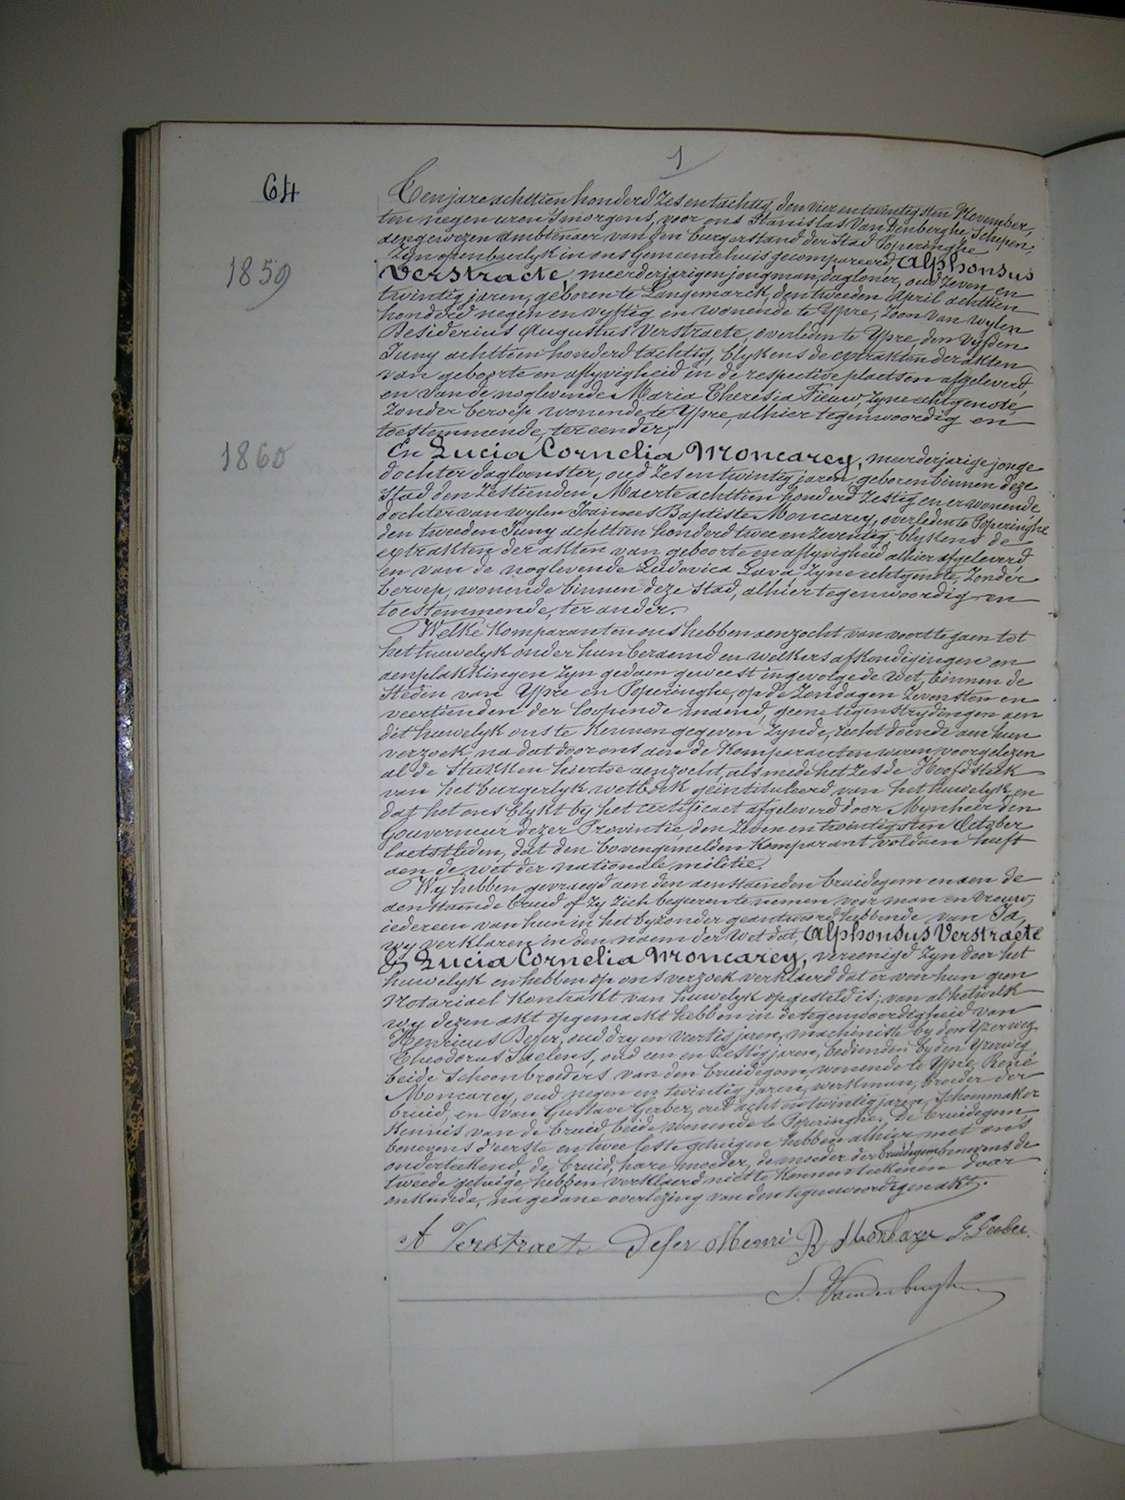 1
64
Ten jare achttien honderd zes en tachtig, den vier en twintigsten November,
ten negen uren 's morgens, voor ons Stanislas Van Denberghe, Schepen,
aengewezen Ambtenaer van den burgerstand der Stad Poperinghe
Zyn openbaerlyk in ons Gemeentehuis gecompareerd, Alphonsus
1859
Verstraete, meerderjarigen jongman, dagloner, oud zeven en
twintig jaren, geboren te Langemarck, den tweeden April achttien
honderd negen en vyftig, en wonende te Ypre, zoon van wylen
Desiderius Augustus Verstraete, overleden te Ypre, den vyfden
Juny achttien honderd tachtig, blykens de extrakten der akten
van geboorte en aflyvigheid in de respective plaetsen afgeleverd,
en van de noglevende Maria Theresia Tieuw, zyne echtgenote,
zonder beroep wonende te Ypre, alhier tegenwoordig en
toestemmende, ter eender;
1860
En Lucia Cornelia Moncarey, meerderjarige jonge
dochter dagloonster, oud zes en twintig jaren, geboren binnen deze
Stad den zestienden Maerte achttien honderd zestig en er wonende
dochter van wylen Joannes Baptiste Moncarey, overleden te Poperinghe
den tweeden Juny achttien honderd twee en zeventig, blykens de
extrakten der akten van geboorte en aflyvigheid alhier afgeleverd
en van de noglevende Ludovica Lava zyne echtgenote, zonder
beroep, wonende binnen deze Stad, alhier tegenwoordig en
toestemmende, ter ander.
Welke Komparanten ons hebben aenzocht van voort te gaen tot
het huwelyk onder hun beraemd en welkers afkondigingen en
aenplakkingen zyn gedaen geweest ingevolge de wet, binnen de
Steden van Ypre en Poperinghe, op de Zondagen zevensten en
veertienden der loopende maend, geene tegenstrydingen aen
dit huwelyk ons te kennen gegeven zynde, recht doende aen hun
verzoek na dat door ons aen de Komparanten waren voorgelezen
al de Stukken hiertoe aenzocht, als mede het zesde Hoofdstuk
van het burgerlyk wetboek geintituleerd van het huwelyk en
dat het ons blykt by het certificaet afgeleverd door Mynheer den
Gouverneur dezer Provintie, den zeven en twintigsten October
laetstleden, dat den bovengemelden Komparant voldaen heeft
aen de wet der nationale militie.
Wy hebben gevraegd aen den aenstaenden bruidegom en aen de
aenstaende bruid of zy zich begeren te nemen voor man en vrouw,
iedereen van hun in het byzonder geantwoord hebbende van Ja,
wy verklaren in den naem der wet dat, Alphonsus Verstraete
& Lucia Cornelia Moncarey, vereenigd zyn door het
huwelyk en hebben op ons verzoek verklaerd dat er van hun geen
Notariael Kontrakt van huwelyk opgesteld is; van al hetwelk
wy dezen akt opgemaekt hebben in de tegenwoordigheid van
Henricus Defer, oud dry en veertig jaren, machinist by den Yzerweg
Theodorus Saelens, oud een en zestig jaren, bedienden by den Yzerweg
beide Schoonbroeders van den bruidegom, wonende te Ypre, René
Moncarey, oud negen en twintig jaren, werkman, broeder der
bruid, en van Gustave Gerber, oud acht en twintig jaren, Schoenmaker
Kennis van de bruid beide wonende te Poperinghe. De bruidegom
benevens d'eerste en twee leste getuigen hebben alhier met ons
onderteekend, de bruid, hare moeder, de moeder der bruidegom benevens de
tweede getuige hebben verklaerd niet te konnen teekenen door
onkunde, na gedane overlezing van den tegenwoordigen akt.
A Verstraete Defer Henri R Monkarey G. Gerber.
S. Vandenberghe